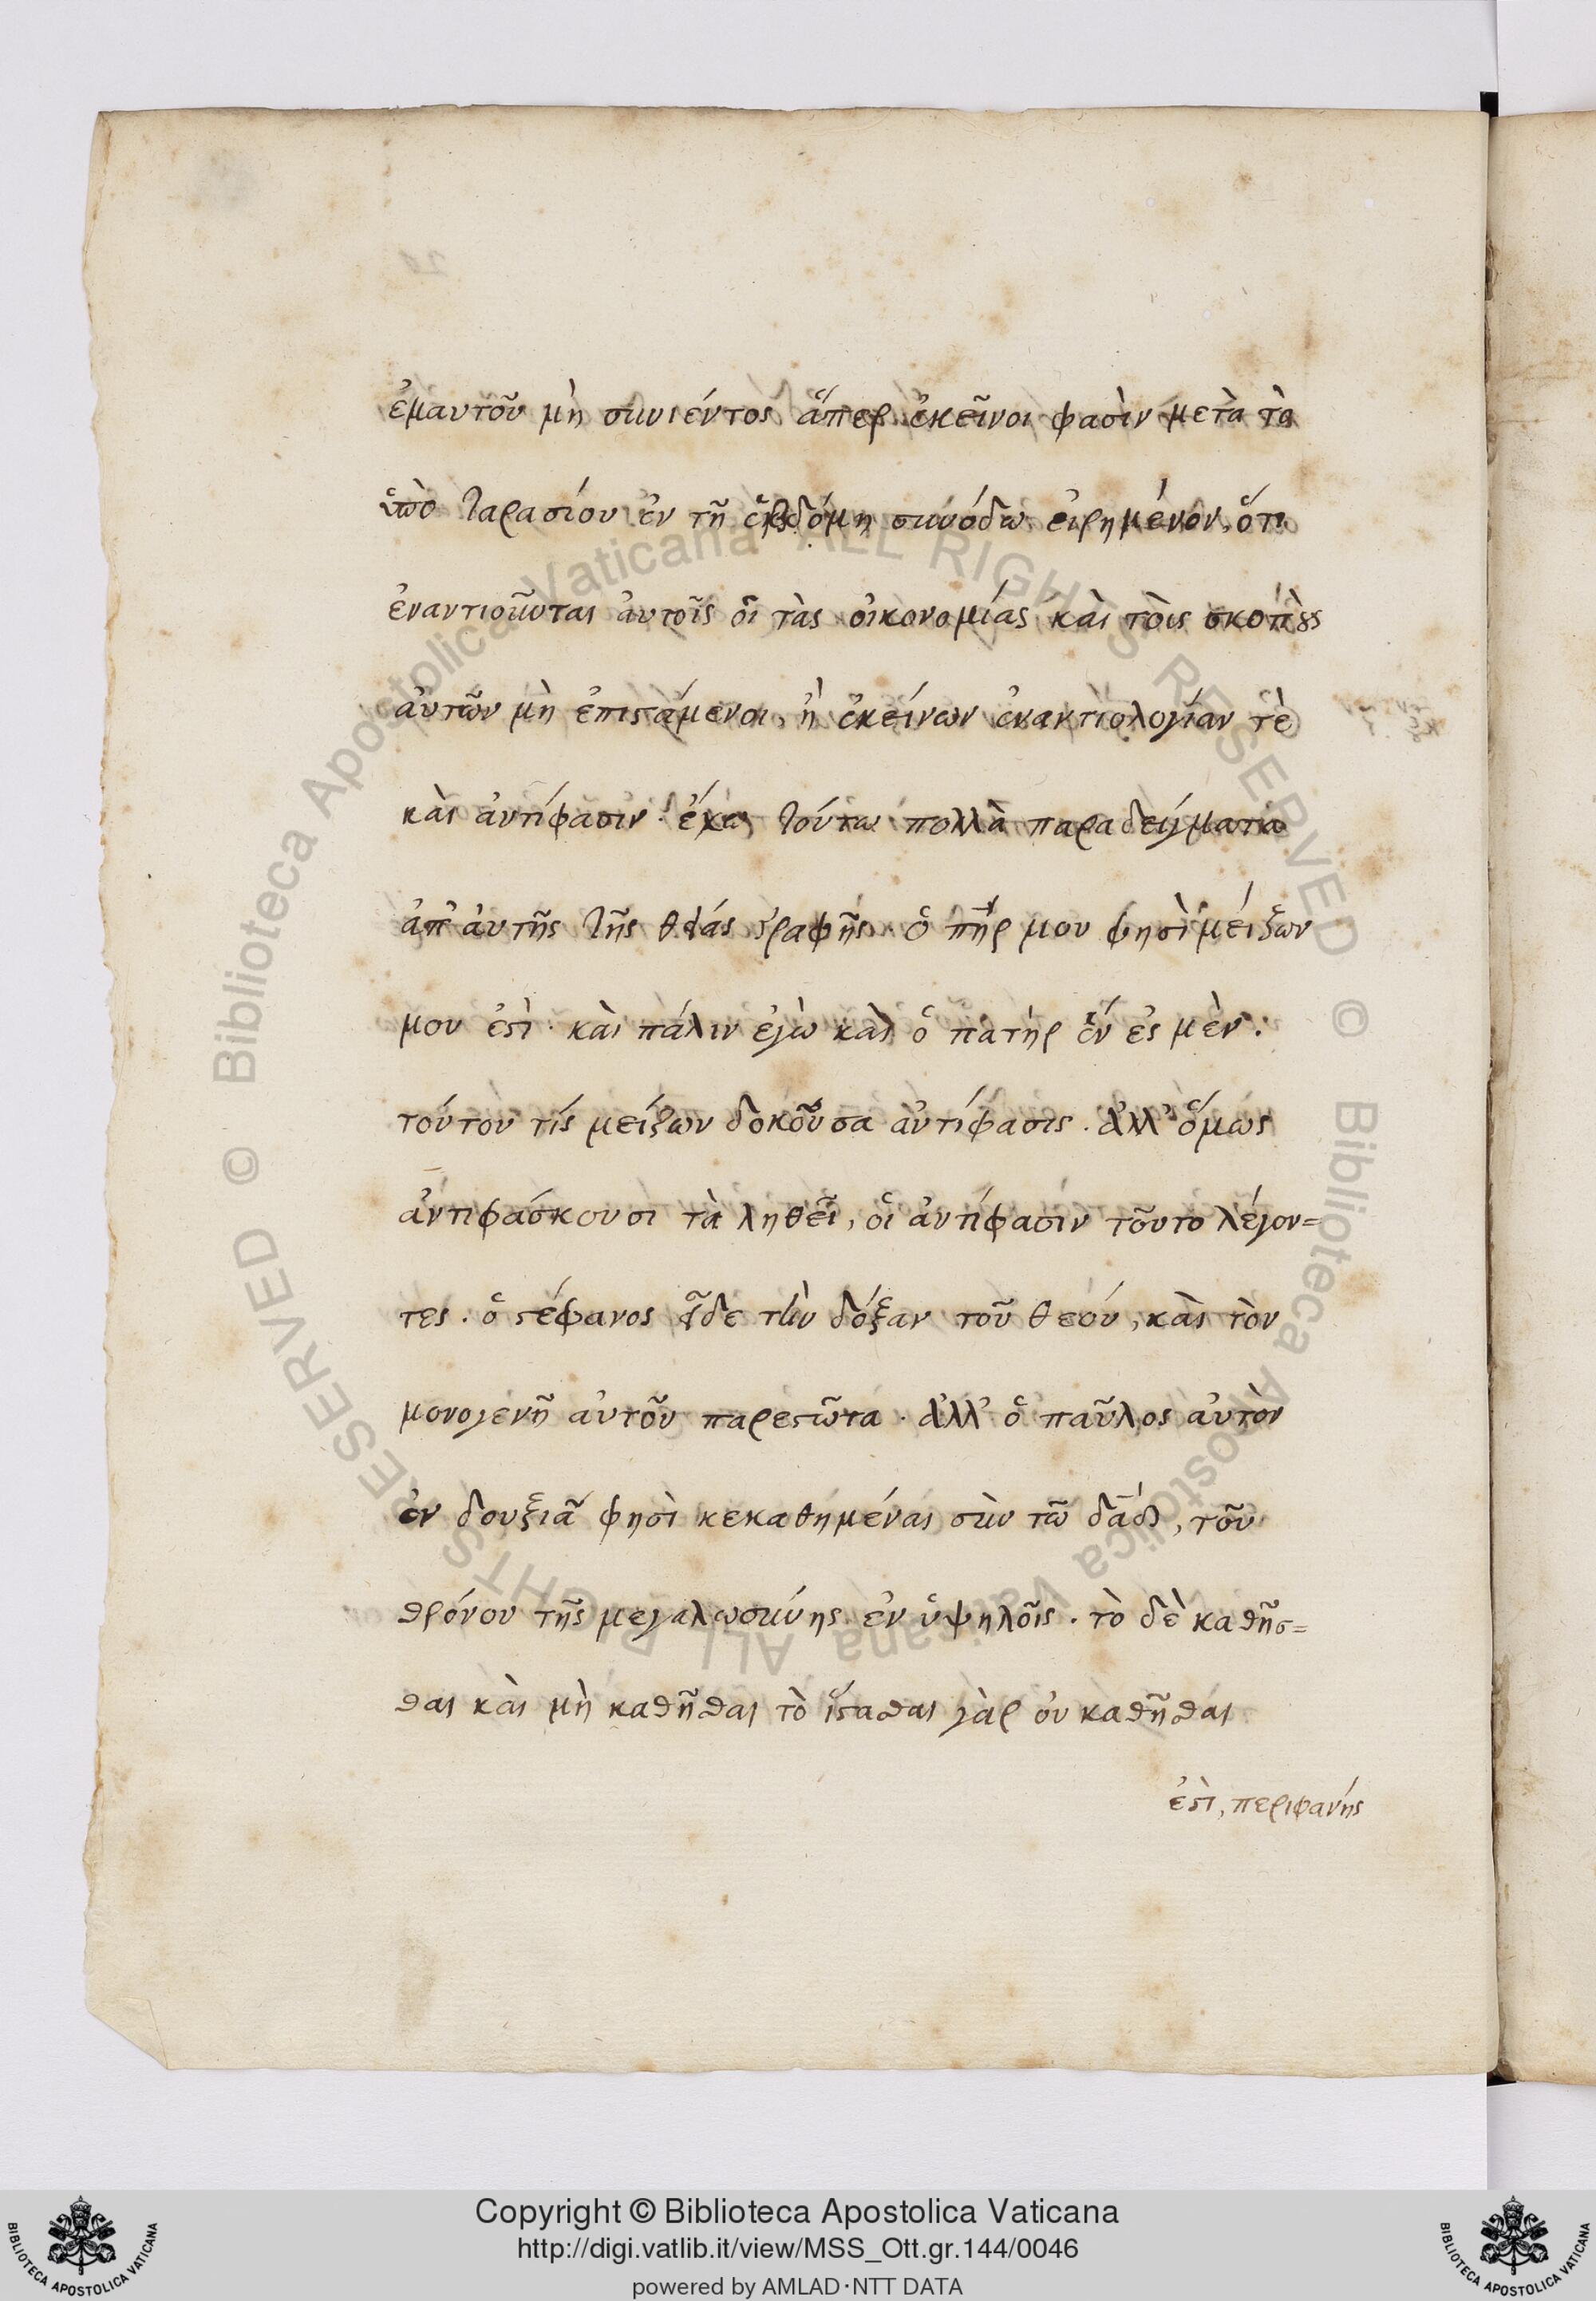 ἐμαυτοῦ μὴ συνιέντος ἅπερ ἐκεῖνοι φασὶν μετὰ τὸ
ὑπὸ ταρασίου ἐν τῆ ἑβδόμη συνόδω εἰρημένον, ὅτι
ἐναντιοῦνται ἀυτοῖς ὅι τὰς οἰκονομίας κὰι τὸις σκοπὸυς
ἀυτῶν μὴ ἐπιστάμενοι, ἢ ἐκείνων ἐναντιολογίαν τὲ
κὰι ἀντίφασιν. τούτω πολλὰ παραδείγματα
ἀπ' ἀυτῆς τῆς θείας γραφῆς. ὁ πηρ μου φησὶ μείζων
μου ἐστὶ. κὰι πάλιν ἐγὼ κὰι ὁ πατὴρ ἕν ἐσ μὲν.
τούτου τίς μείζων δοκοῦσα ἀντίφασις. ἀλλ' ὅμως
ἀντιφάσκουσι τὰ ληθεῖ, ὁι ἀντίφασιν τοῦτο λέγον=
τες. ὁ στέφανος εἶδε τὴν δόξαν τοῦ θεόυ, κὰι τὸν
μονογενῆ ἀυτοῦ παρεστῶτα. ἀλλ' ὁ παῦλος ἀυτὸν
ἐν δουξιᾶ φησὶ κεκαθημέναι σὺν τῶ δαδ, τοῦ
θρόνου τῆς μεγαλωσύνης ἐν ὑψηλοῖς. τὸ δὲ καθῆσ=
θαι κὰι μὴ καθῆσθαι τὸ ἵστασθαι γὰρ ὀυ καθῆσθαι
ἐστὶ, περιφανής
Copyright © Biblioteca Apostolica Vaticana
http://digi.vatlib.it/view/MSS_Ott.gr.144/0046
powered by AMLAD·NTT DATA